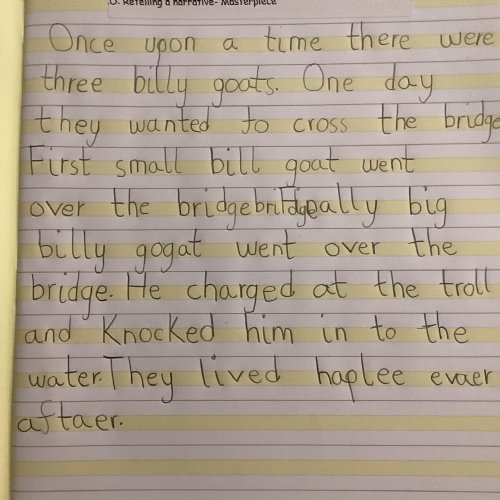 .O: Retelling a narrative- Masterpiece
Once upon a time there were
three billy goats. One day
they wanted to cross the bridge
First small bill goat went
over the bridge big
billy gogat went over the
bridge. He charged at the troll
and knocked him in to the
water. They lived haplee evaer
aftaer.